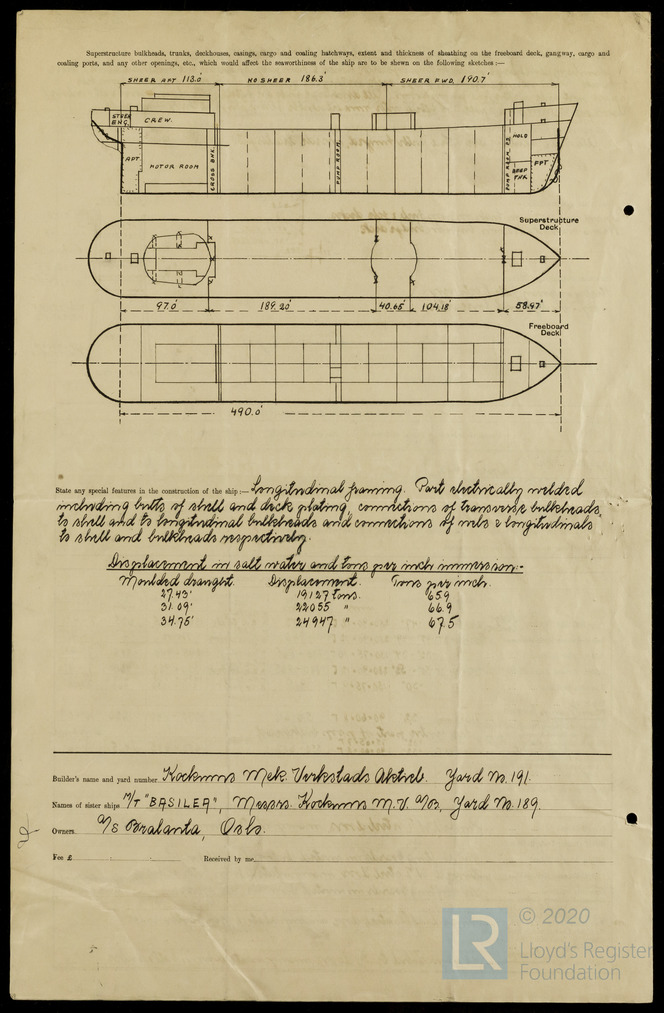 Superstructure bulkheads, trunks, deckhouses, casings, cargo and coaling hatchways, extent and thickness of sheathing on the freeboard deck, gangway, cargo and
coaling ports, and any other openings, etc., which would affect the seaworthiness of the ship are to be shewn on the following sketches :—
SHEER AFT 113.0' NO SHEER 186.3' SHEER FWD. 190.7'
STEER ENG. CREW.
APT MOTOR ROOM CROSS BNK. PUMP ROOM. PUMP ROOM HOLD DEEP TNK. FPT
Superstructure
Deck.
97.0' 189.20' 40.65' 104.18' 58.97'
Freeboard
Deck.
490.0'
State any special features in the construction of the ship :— Longitudinal framing. Part electrically welded
including butts of shell and deck plating, connections of transverse bulkheads,
to shell and to longitudinal bulkheads and connections of webs & longitudinals
to shell and bulkheads respectively.
Displacement in salt water and tons per inch immersion:-
Moulded draught. Displacement. Tons per inch.
27.43' 19127 tons. 65.9
31.09' 22055 " 66.9
34.75' 24947 " 67.5
Builder's name and yard number Kockums Mek. Verkstads Aktieb. Yard No. 191.
Names of sister ships M/T "BASILEA", Messrs. Kockums M.V. A/B, Yard No. 189.
Owners A/S Bralanta, Oslo.
Fee £ Received by me
LR © 2020
Lloyd's Register
Foundation